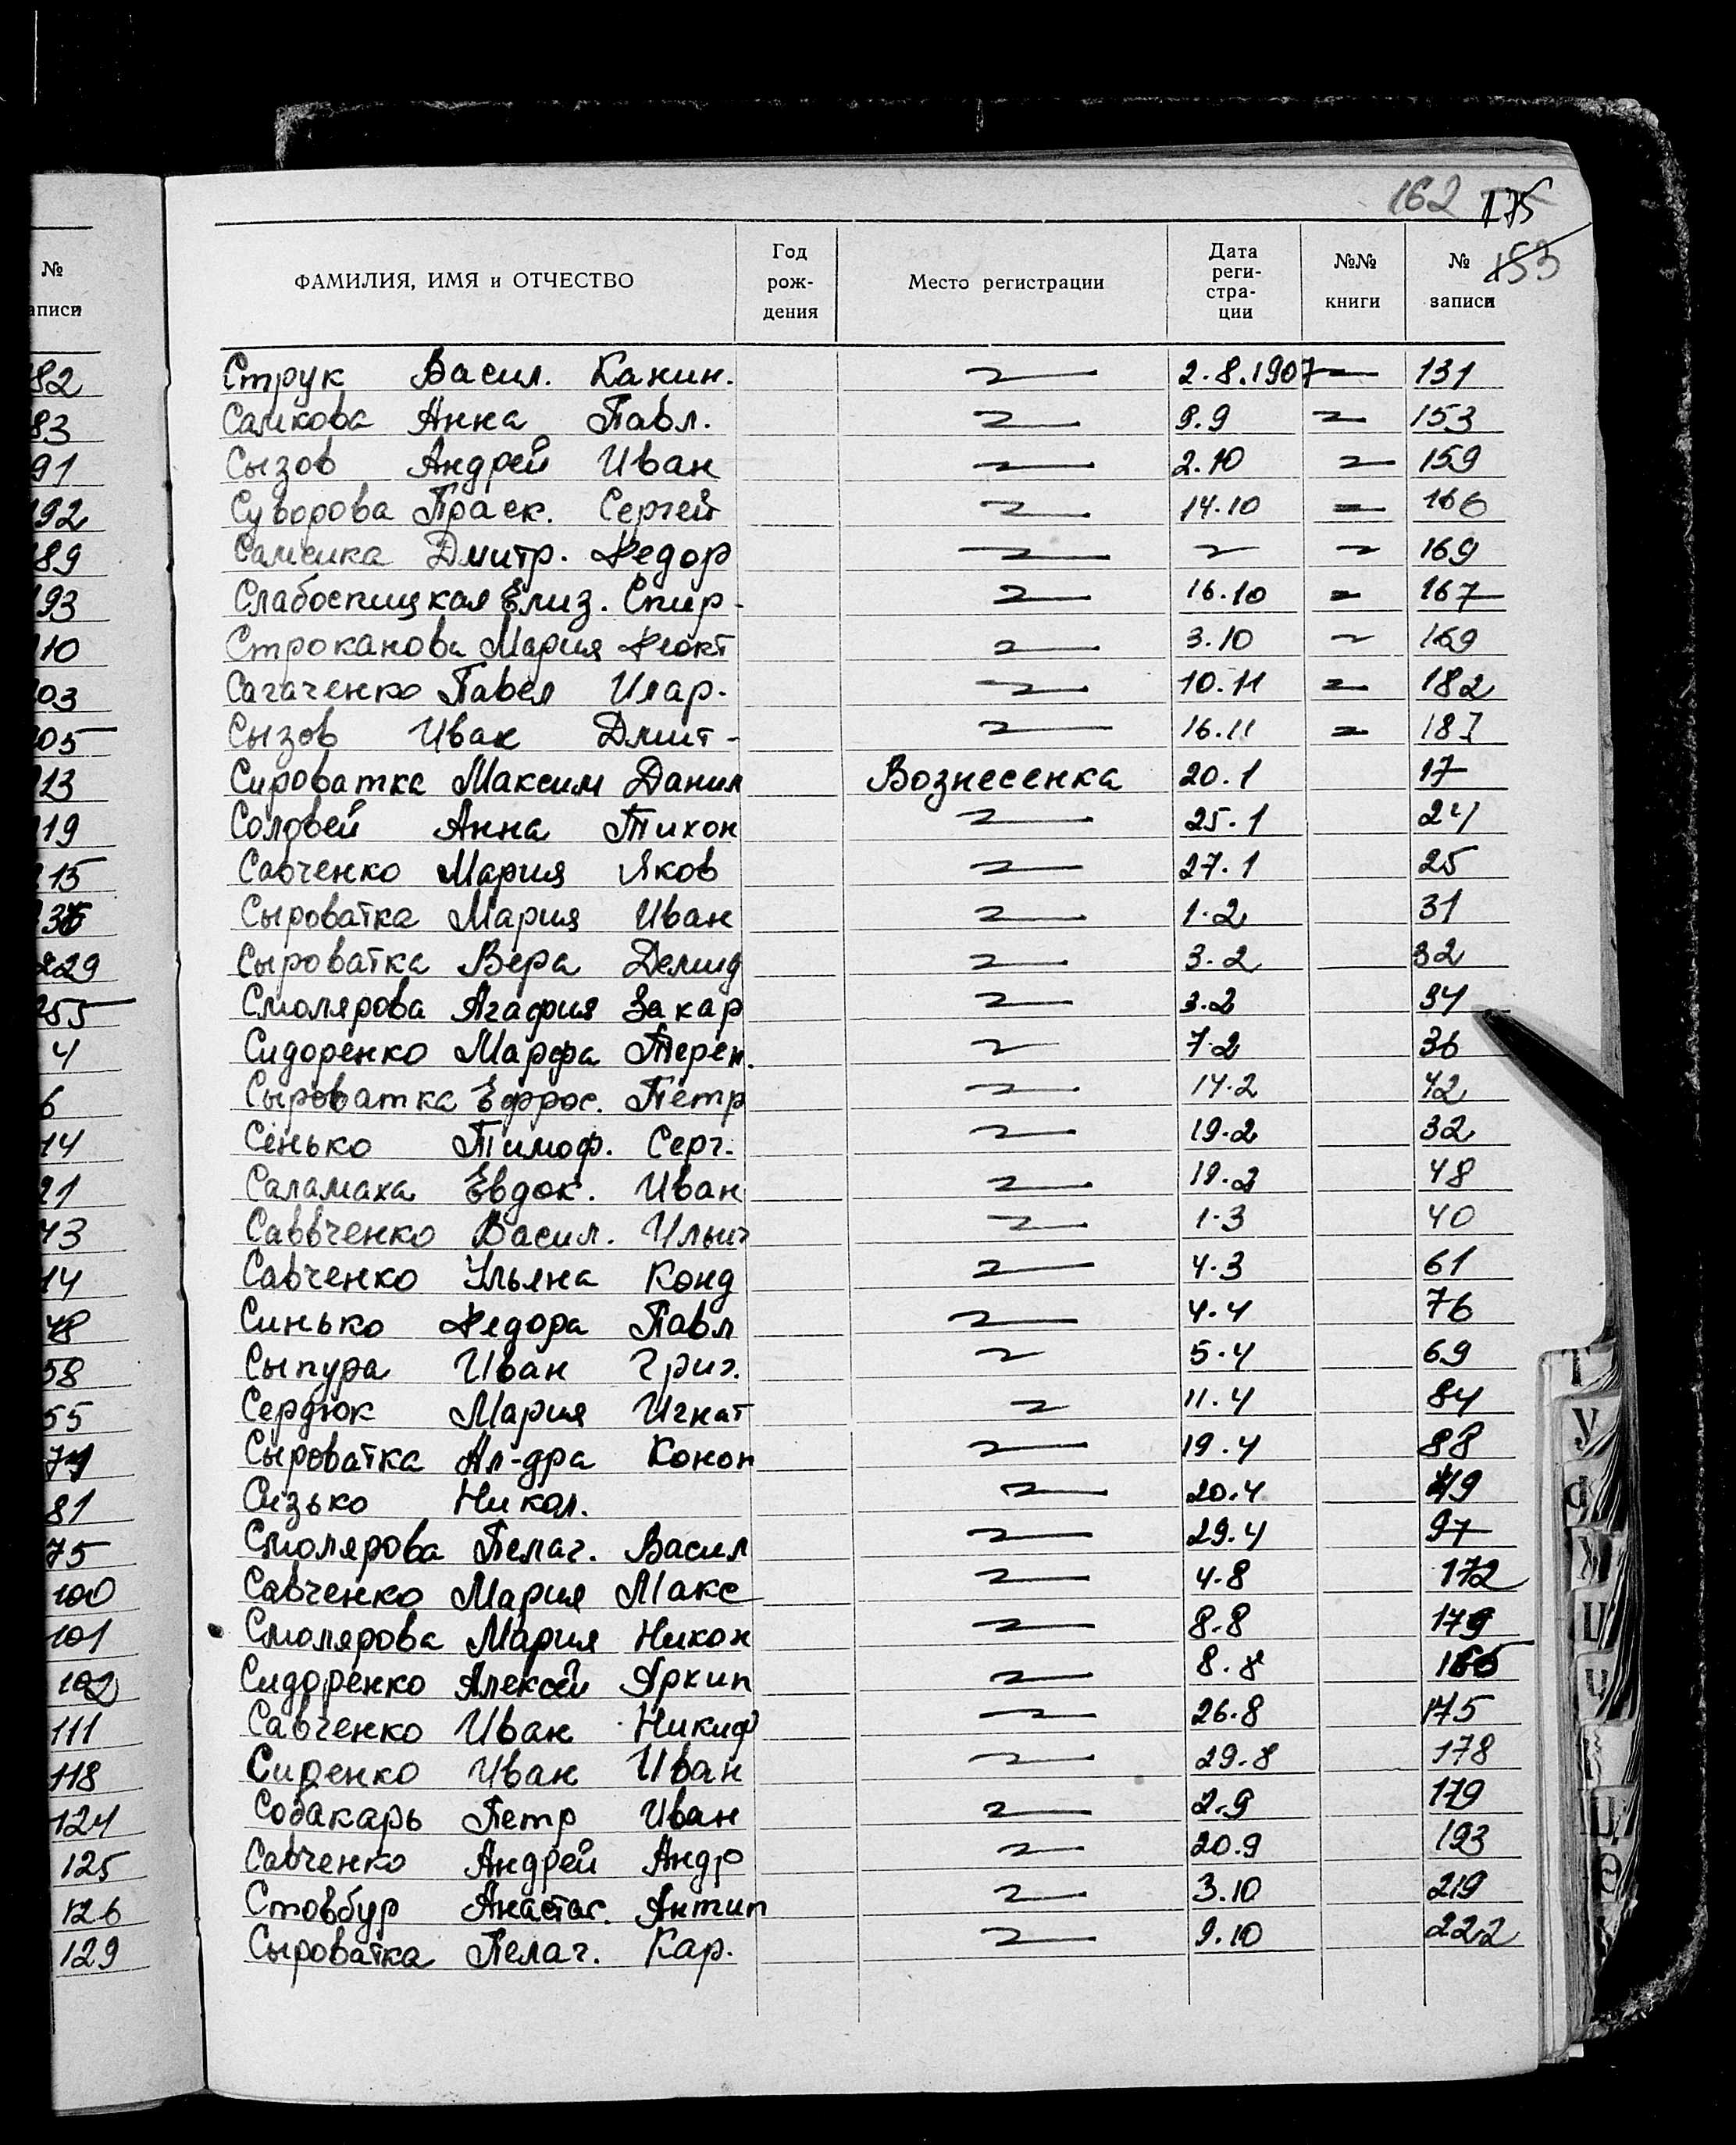 162 175
153
ФАМИЛИЯ, ИМЯ и ОТЧЕСТВО Год рож- дения Место регистрации Дата реги- стра- ции №№ книги № записи
№ записи
82 Струк Васил. Канин. 2.8.1907 131
83 Самкова Анна Павл. 9.9 153
91 Сызов Андрей Иван 2.10 159
92 Суворова Праск. Сергей 14.10 166
89 Дмитр. Федор 169
93 Слабоспицкая Елиз. Спир. 16.10 167
10 Строканова Мария Феокт 3.10 169
03 Сагаченко Павел Илар. 10.11 182
05 Сызов Иван Дмит- 16.11 187
13 Сироватка Максим Данил Вознесенка 20.1 17
19 Соловей Анна Тихон 25.1 24
15 Савченко Мария Яков 27.1 25
Сыроватка Мария Иван 1.2 31
229 Сыроватка Вера Демид 3.2 32
255 Смолярова Агафия Захар 3.2 34
4 Сидоренко Марфа Терен. 7.2 36
6 Сыроватка Ефрос. Петр 14.2 42
14 Сенько Тимоф. Серг. 19.2 32
21 Саламаха Евдок. Иван 19.2 48
43 Саввченко Васил. Ильич 1.3 40
14 Савченко Ульяна Конд 4.3 61
48 Синько Федора Павл 4.4 76
58 Сыпура Иван Григ. 5.4 69
55 Сердюк Мария Игнат 11.4 84
71 Сыроватка Ал-дра Конон 19.4 88
81 Сизько Никол. 20.4 49
75 Смолярова Пелаг. Васил 29.4 97
100 Савченко Мария Макс 4.8 172
101 Смолярова Мария Никон 8.8 179
102 Сидоренко Алексей Архип 8.8
111 Савченко Иван Никиф 26.8 175
118 Сиренко Иван Иван 29.8 178
124 Собакарь Петр Иван 2.9 179
125 Савченко Андрей Андр 20.9 193
126 Стовбур Анастас. Антип 3.10 219
129 Сыроватка Пелаг. Кар. 9.10 222